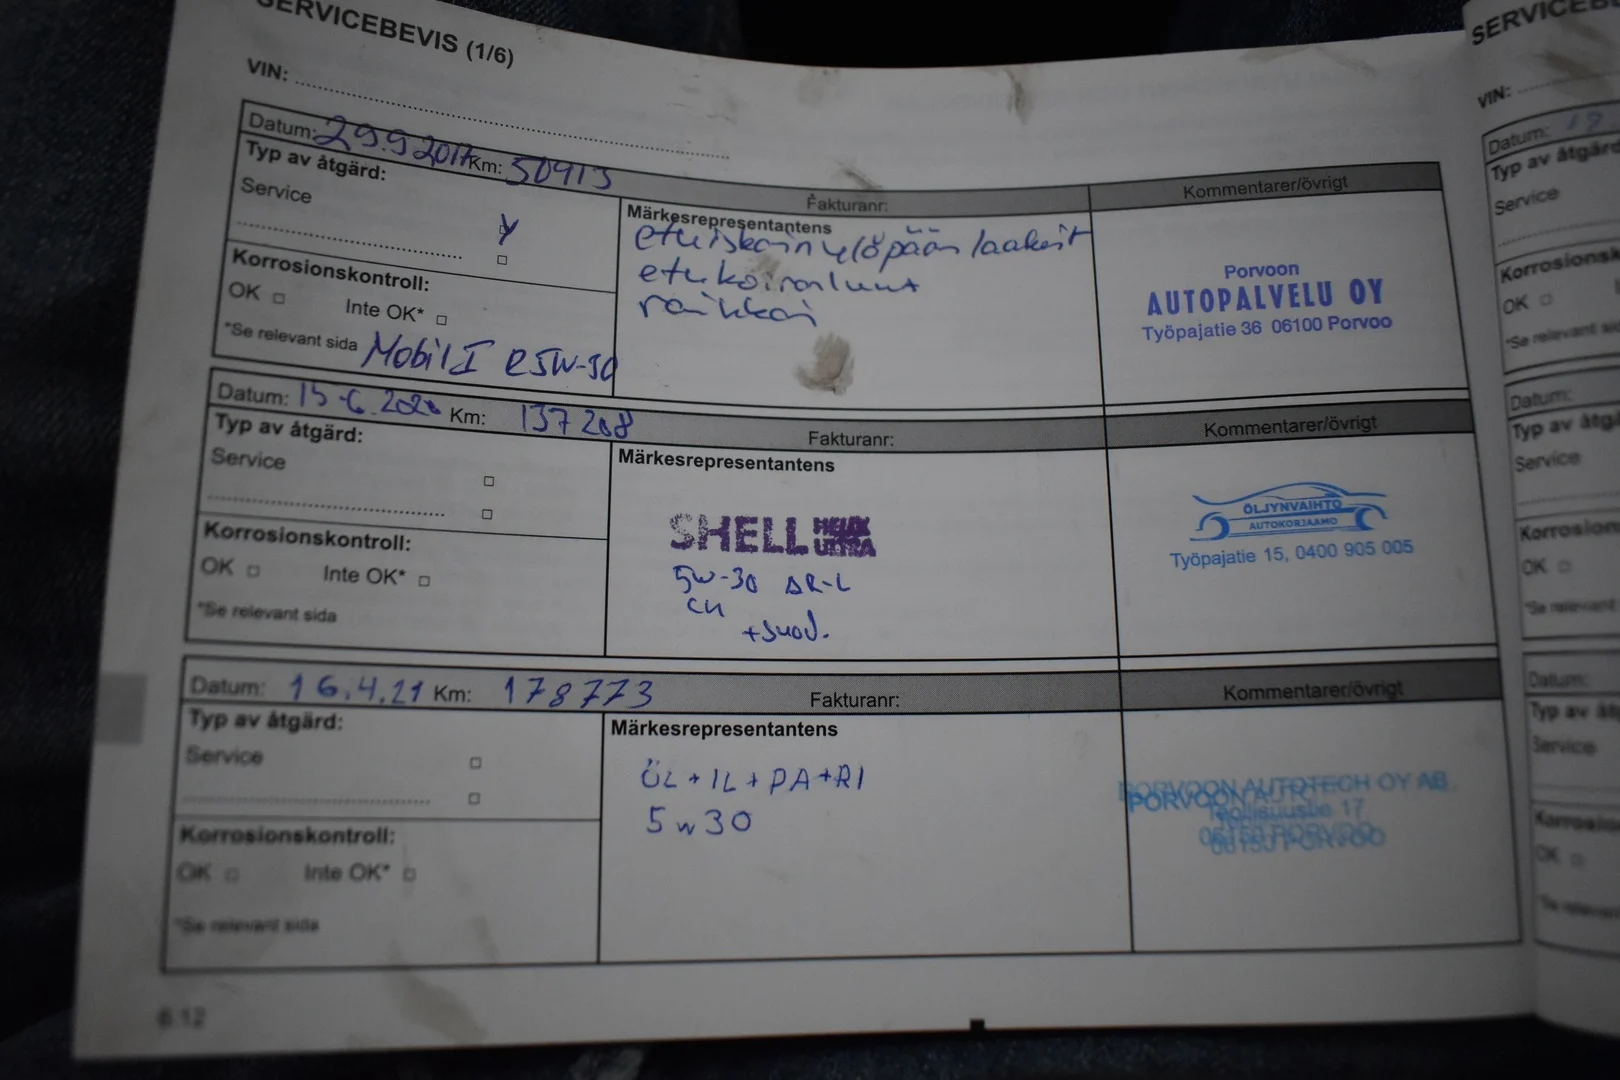 SERVICEBEVIS (1/6)
VIN:
Datum: 29.9 2017 Km: 50913
Fakturanr:
Kommentarer/övrigt
Typ av åtgärd:
Service
Korrosionskontroll:
OK Inte OK*
*Se relevant sida Mobil 1 5W-30
Märkesrepresentantens
etuiskarin yläpään laakerit
etukoiranluut
raikkai
Porvoon
AUTOPALVELU OY
Työpajatie 36 06100 Porvoo
Datum: 15.6.2020 Km: 137208
Fakturanr:
Kommentarer/övrigt
Typ av åtgärd:
Service
Korrosionskontroll:
OK Inte OK*
*Se relevant sida
Märkesrepresentantens
SHELL HELIX ULTRA
5W-30 AR-L
+suod.
ÖLJYNVAIHTO
AUTOKORJAAMO
Työpajatie 15, 0400 905 005
Datum: 16.4.21 Km: 178773
Fakturanr:
Kommentarer/övrigt
Typ av åtgärd:
Service
Korrosionskontroll:
OK Inte OK*
*Se relevant sida
Märkesrepresentantens
ÖL+IL+PA+RI
5w30
PORVOON AUTOTECH OY AB
Teollisuustie 17
06150 PORVOO
6.12
SERVICEB
VIN:
Datum:
Typ av åtgärd
Service
Korrosionsk
OK
*Se relevant si
Datum:
Typ av åtgä
Service
Korrosion
OK
*Se relevant
Datum:
Typ av åt
Service
Korrosion
OK